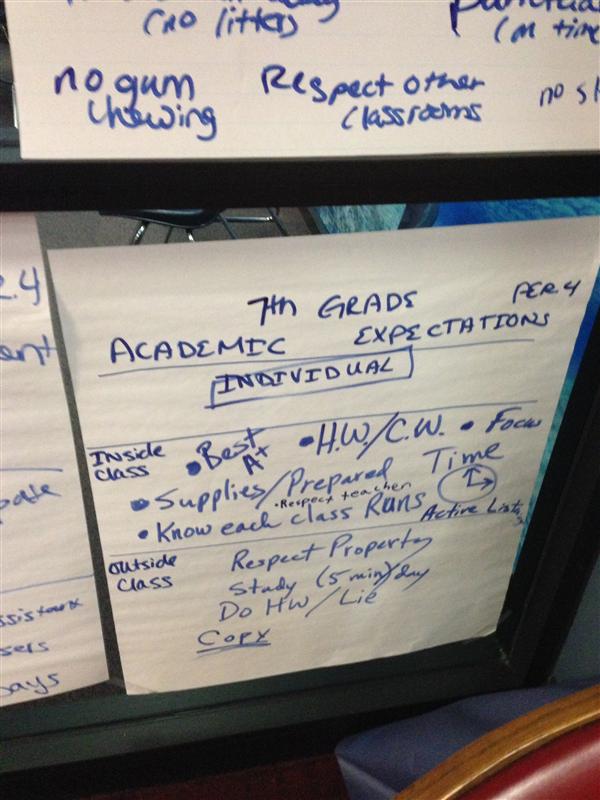 (no litter)
(on time
no gum
chewing
Respect other
classrooms
no s
7th GRADE
PER. 4
ACADEMIC EXPECTATIONS
INDIVIDUAL
Inside
class
• Best
A+
• H.W./C.W. • Focus
• Supplies/Prepared
Time
• Respect teacher
• Know each class Runs
Active List
Outside
class
Respect Property
Study (5 min)/day
Do HW/Lie
Copy
R. 4
ent
pate
sers